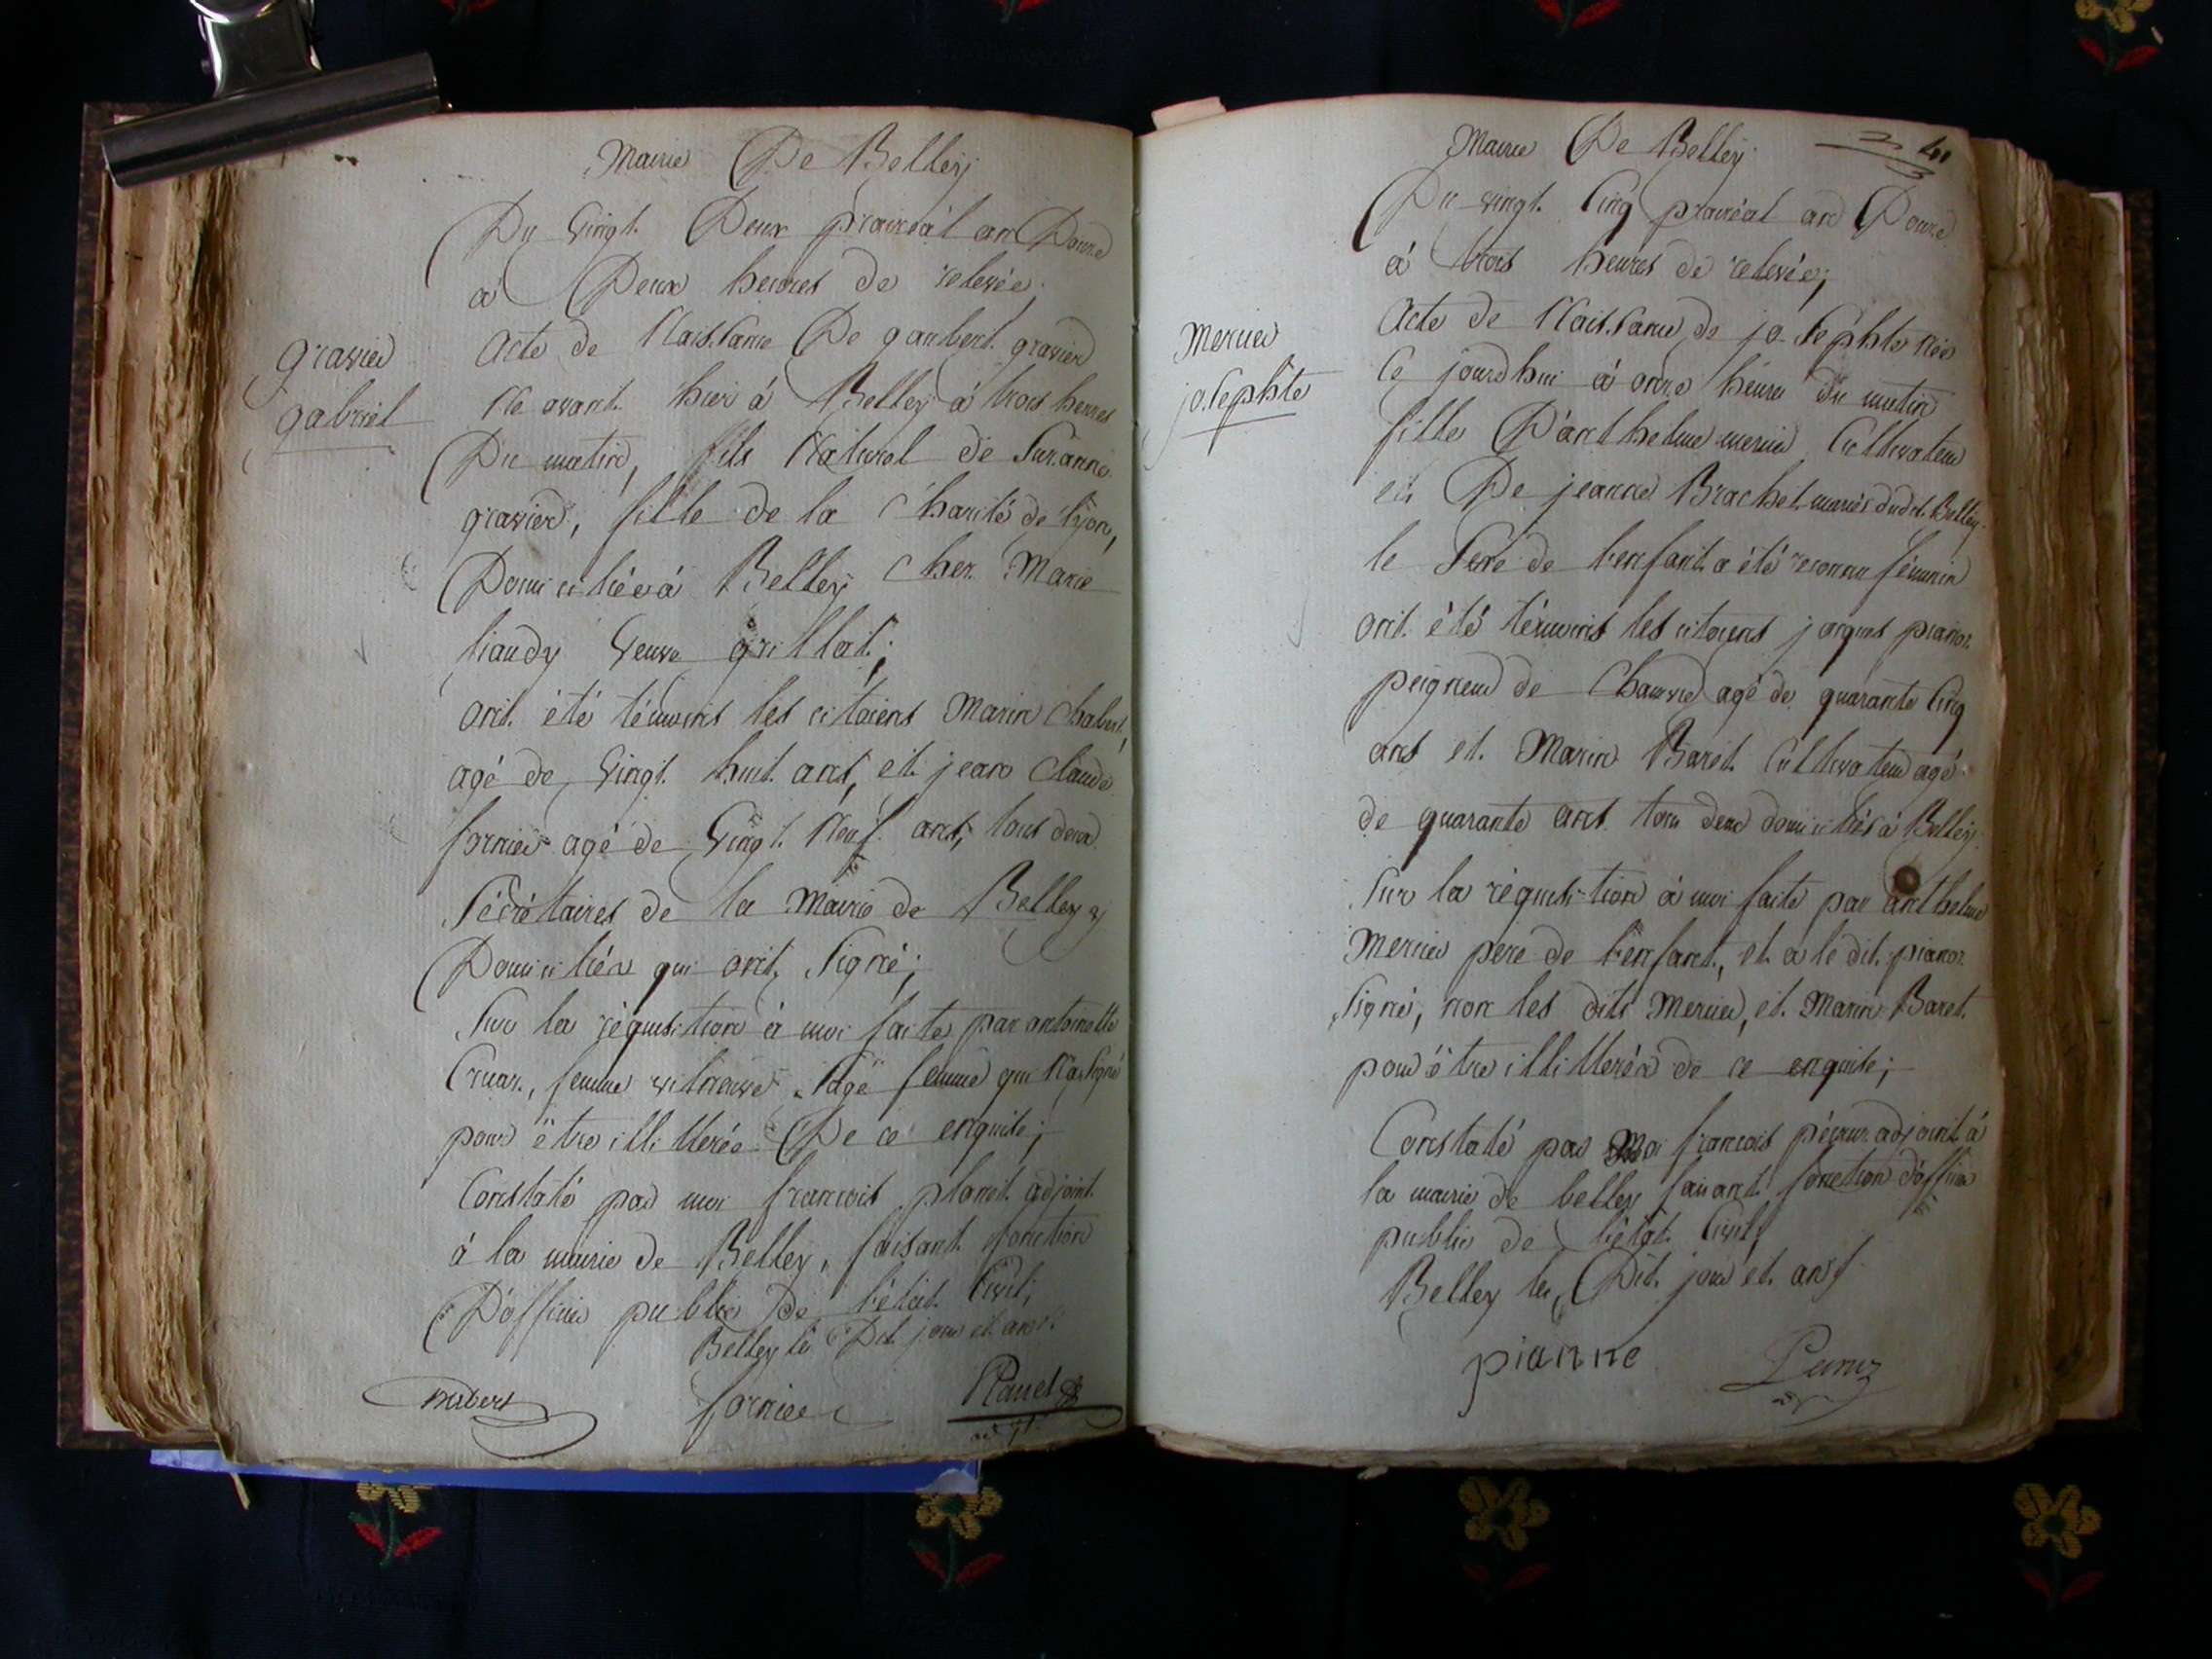 Mairie De Belley
Du Vingt Deux prairéal an Douze
à Deux heures de relevée,
gravier
gabriel
acte de Naissance De gaubert gravier
Né avant hier à Belley à trois heures
Du matin, fils Naturel de Suzanne
gravier, fille de la Charité de lyon,
Domiciliée à Belley chez Marie
liaudy Veuve grillat;
ont été témoins les citoiens Marin Chabert,
agé de Vingt huit ans, et jean Claude
fornier agé de Vingt Neuf ans, tous deux
Sécrétaires de la Mairie de Belley y
Domiciliés qui ont Signé;
Sur la réquisition à moi faite par antoinette
femme vitreuse Sage femme qui N'a Signé
pour être illitterée De ce enquise;
Constaté par moi francois planet adjoint
à la mairie de Belley, faisant fonction
D'officier public De l'état Civil;
Belley les Dit jour et an
fornier Planet
adjt
Mairie De Belley
41
Du vingt Cinq prairéal an Douze
à trois heures de relevée;
Mercier
josephte
Acte de Naissance de josephte née
Ce jourd'hui à onze heures du matin
fille D'anthelme mercier Cultivateur
et De jeanne Brachet mariés dudit Belley
le Sexe de l'enfant a été reconnu féminin
ont été témoins les citoiens jacques pianoz
peigneur de Chanvre agé de quarante Cinq
ans et Marin Baret Cultivateur agé
de quarante ans tous deux domiciliés à Belley
Sur la réquisition à moi faite par anthelme
Mercier pere de l'enfant, et a le dit pianoz
Signé, non les dits Mercier, et Marin Baret
pour être illitterés de ce enquise;
Constaté par Moi francois adjoint à
la mairie de belley faisant fonction d'officier
public de l'état Civil,
Belley les Dit jour et an
pianne